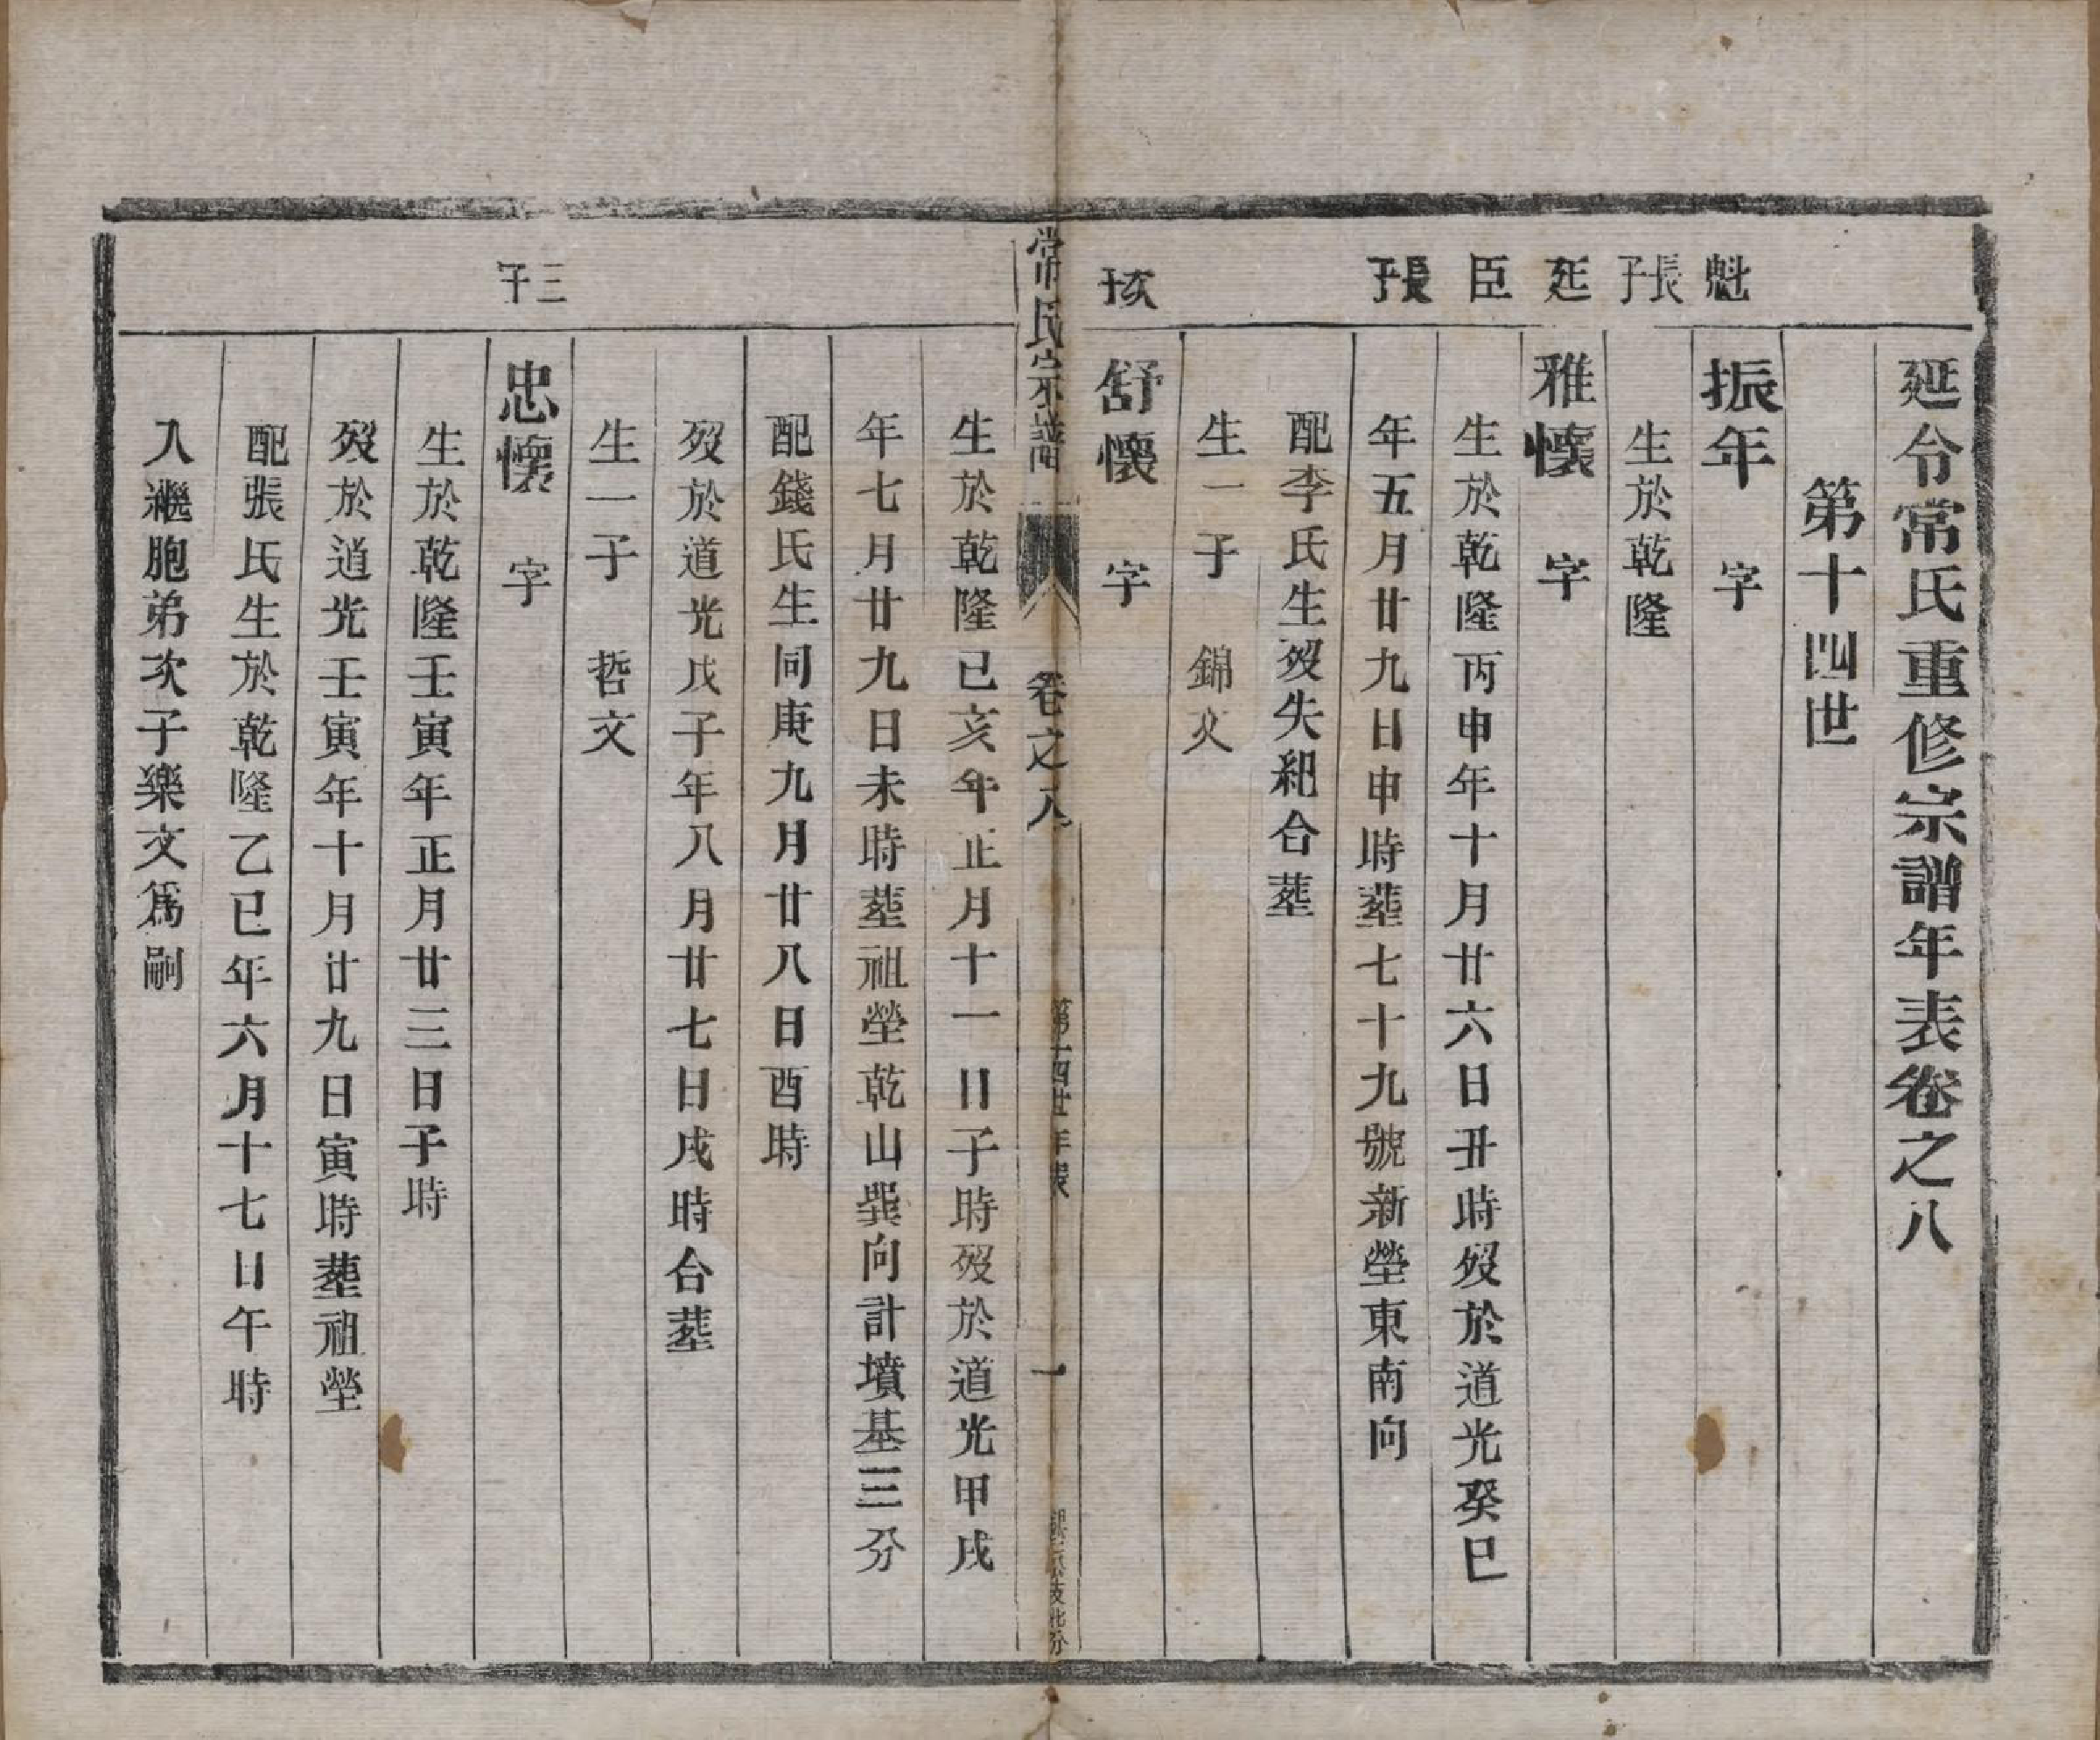 延令常氏重修宗譜年表卷之八
第十四世
魁長子
振年　字
生於乾隆
延臣長子
雅懷　字
生於乾隆丙申年十月廿六日丑時歿於道光癸巳
年五月廿九日申時塟七十九號新塋東南向
配李氏生歿失紀合塟
生一子　錦文
次子
舒懷　字
常氏宗譜　卷之八　第十四世年表　一
生於乾隆己亥年正月十一日子時歿於道光甲戌
年七月廿九日未時塟祖塋乾山巽向計墳基三分
配錢氏生同庚九月廿八日酉時
歿於道光戊子年八月廿七日戌時合塟
生一子　哲文
三子
忠懷　字
生於乾隆壬寅年正月廿三日子時
歿於道光壬寅年十月廿九日寅時塟祖塋
配張氏生於乾隆乙巳年六月十七日午時
入繼胞弟次子樂文爲嗣